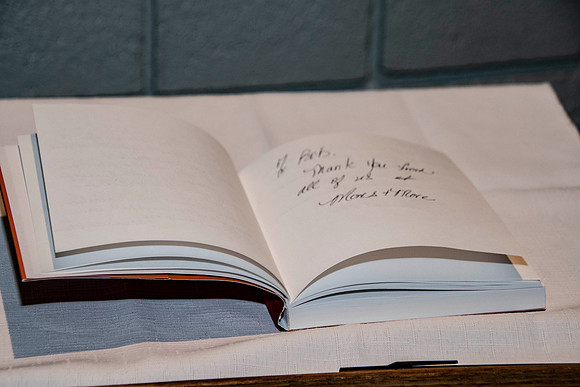 To Bob.
Thank you from
all of us at
More & More